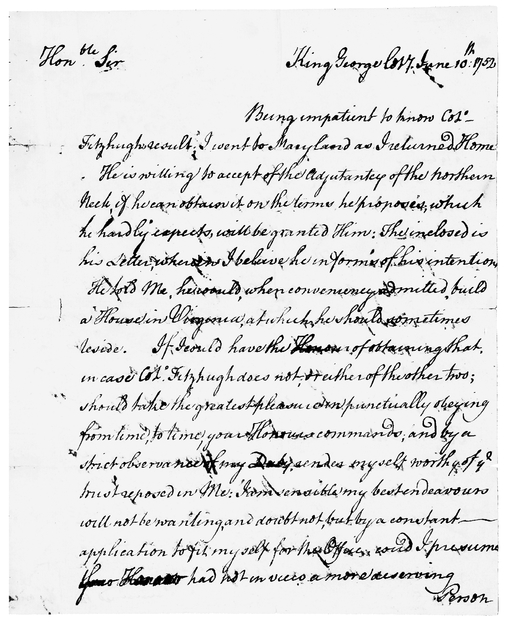 Honble. Sir
King George Coty. June 10th: 1752
Being impatient to know Colo.
Fitzhughs result, I went to Maryland as I returned Home
. He is willing to accept of the Adjutantcy of the northern
Neck, if he can obtain it on the terms he proposes, which
he hardly expects, will be granted Him: The inclosed is
his Letter, wherein I beleive he informs of his intention
He told Me, he would, when conveniency admitted, build
a House in Virginia, at which, he should sometimes
reside. If I could have the Honour of obtaining that,
in case Colo. Fitzhugh does not, or either of the other two;
should take the greatest pleasure in punctually obeying
from time, to time, your Honours commands; and by a
strict observance of my Duty, render myself worthy of ye
trust reposed in Me: I am sensible, my best endeavours
will not be wanting, and doubt not, but by a constant
application to fit myself for the Office, could I presume
Your Honour had not in view a more deserving
Person